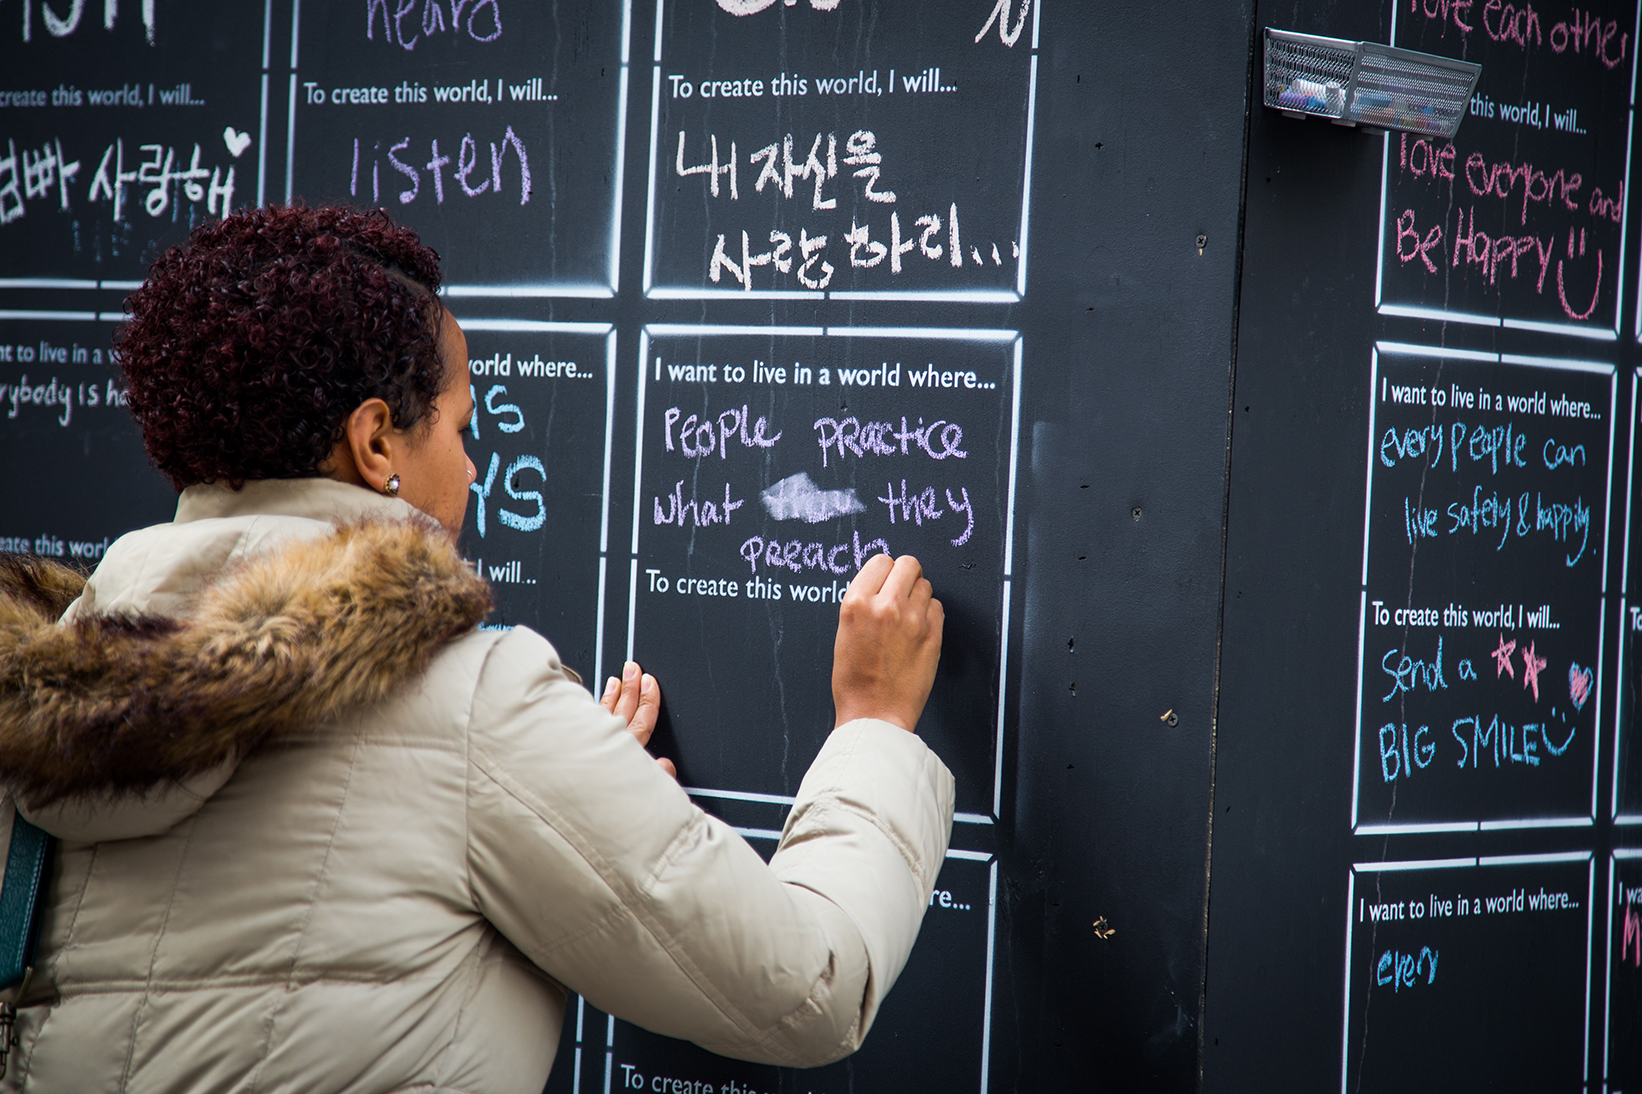 heard
To create this world, I will...
listen
create this world, I will...
사랑해
To create this world, I will...
내 자신을
사랑하리...
love each other
this world, I will...
love everyone and
Be Happy
to live in a
is
world where...
YS
will...
I want to live in a world where...
People practice
what they
preach
To create this world
I want to live in a world where...
every people can
live safety & happily.
To create this world, I will...
Send a
BIG SMILE
create this world
To create this world
I want to live in a world where...
every